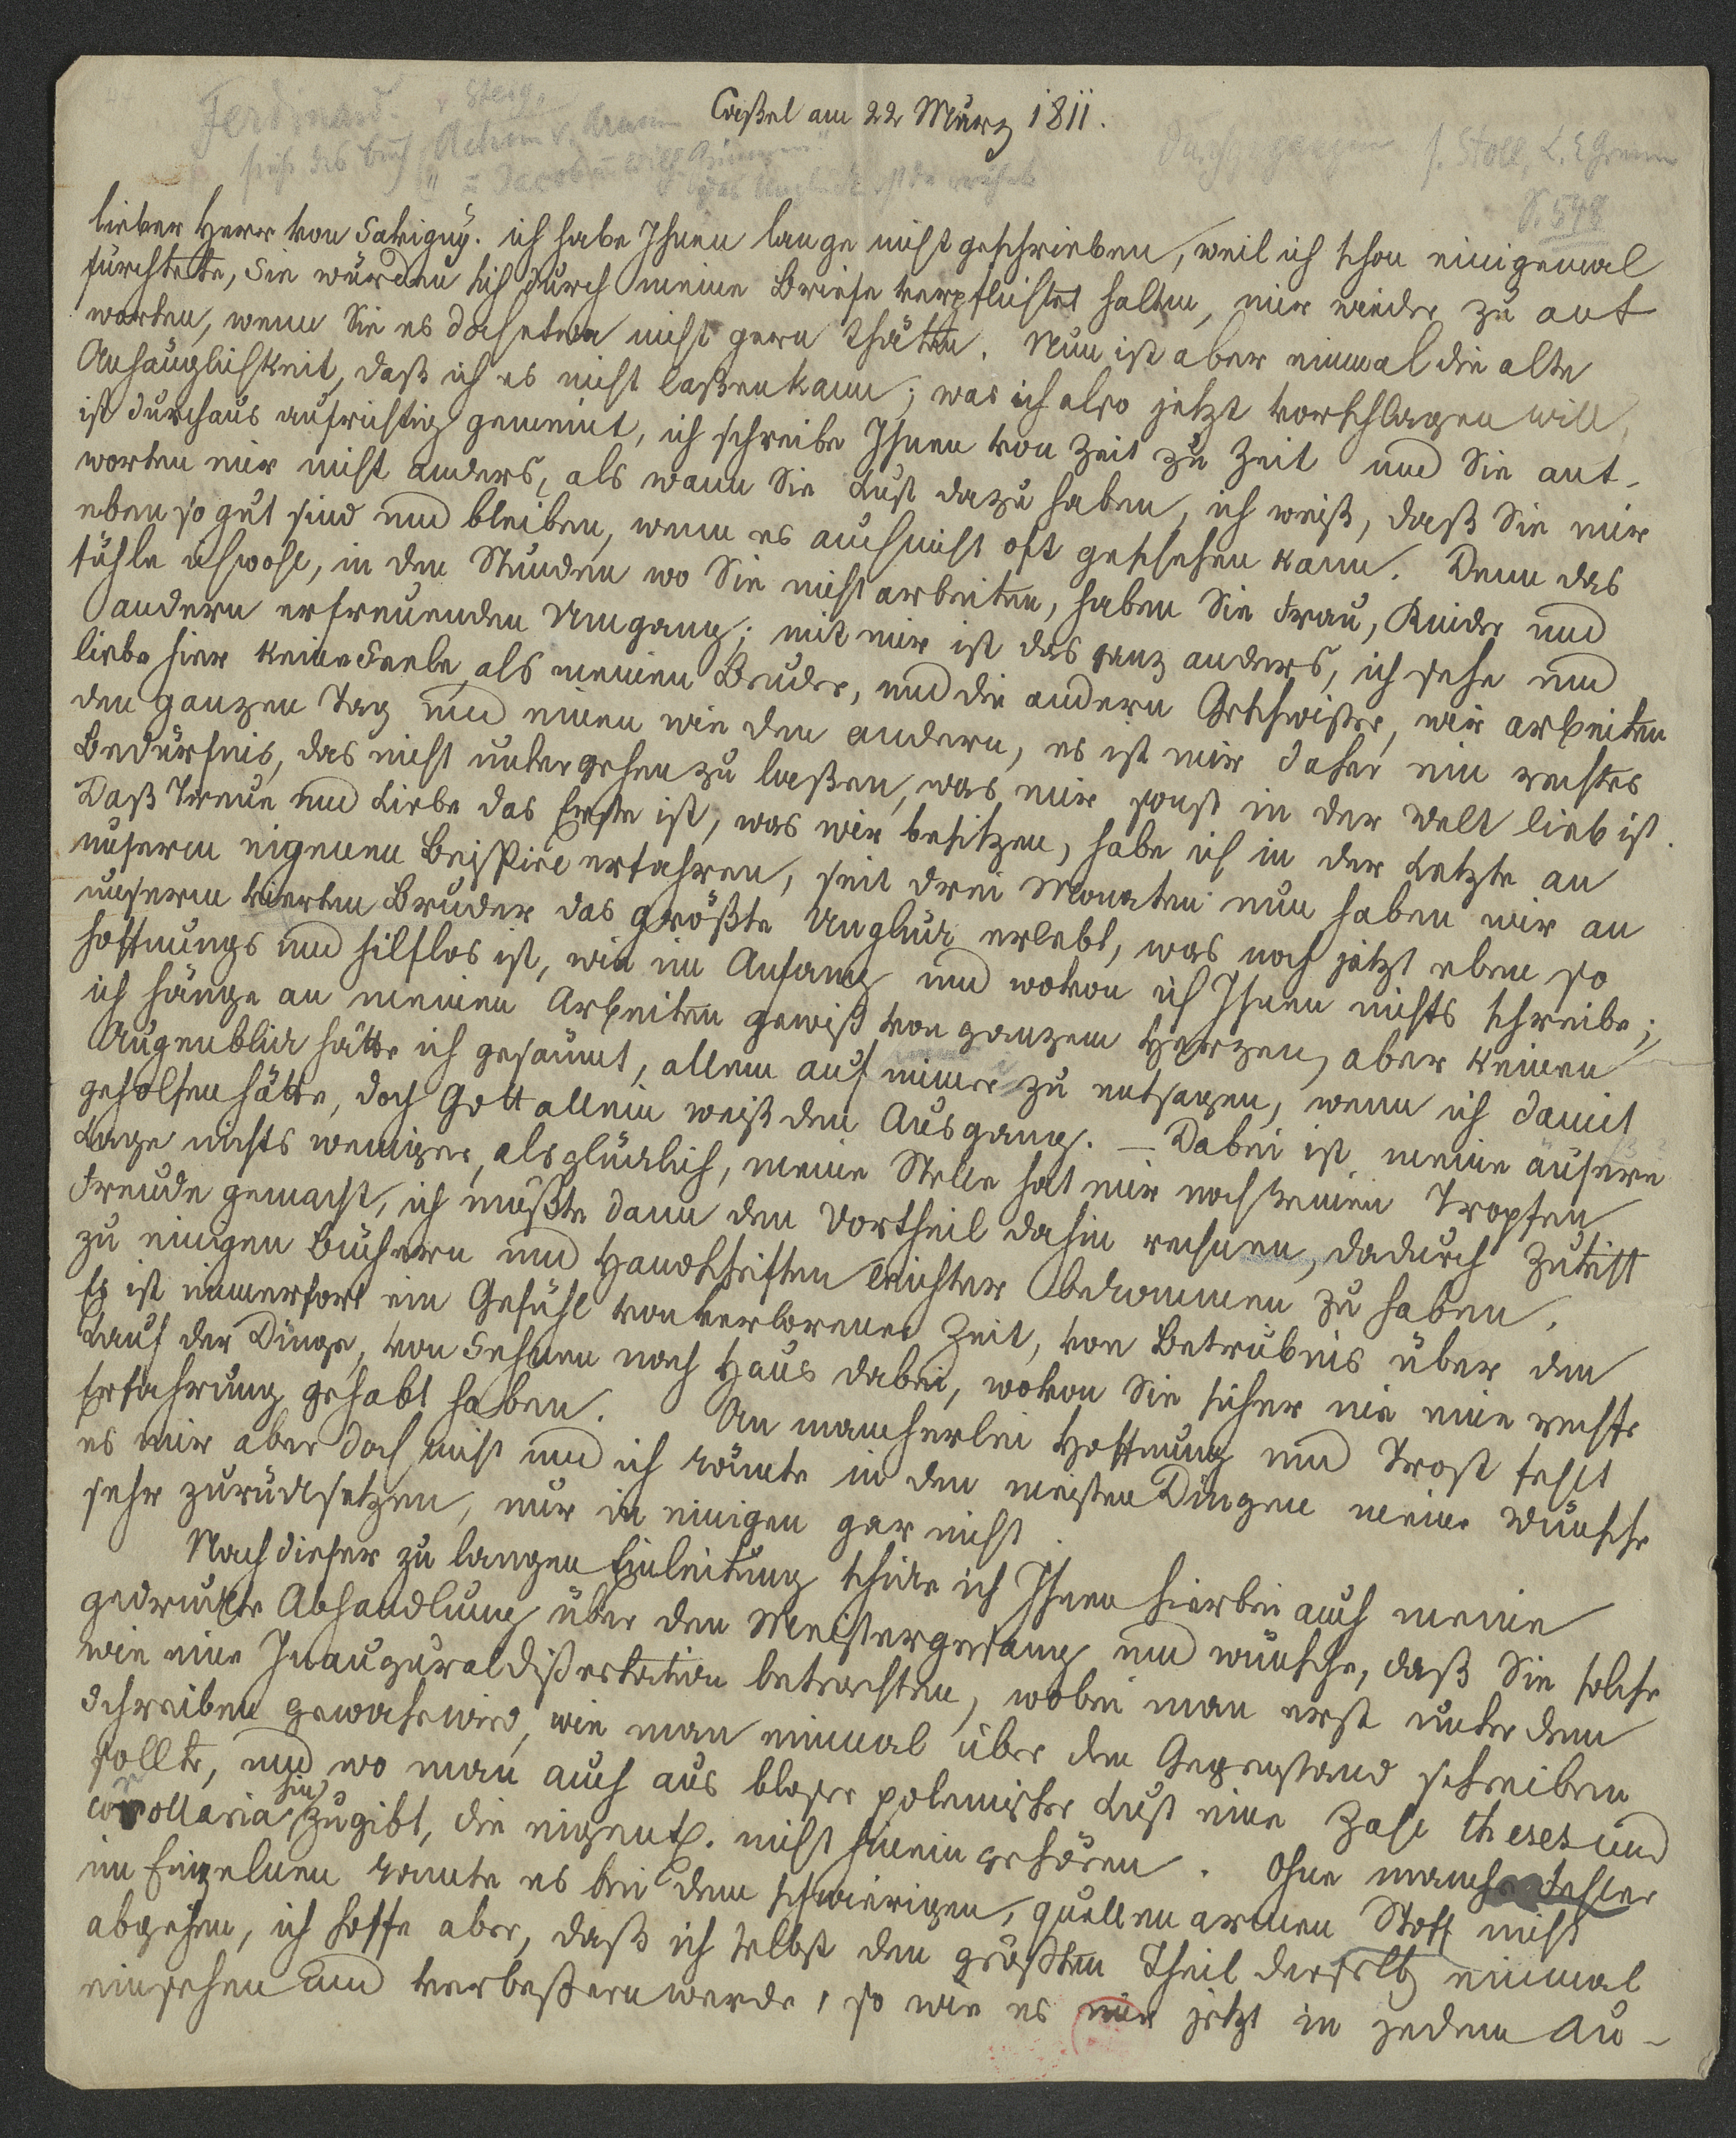 Ferdinand.
Steig,
Caßel am 22 März 1811.
siehe das buch Achim v. Arnim
u Jacob u Wilh. Grimm
s. Stoll, L. E. Grimm
S. 548
lieber Herr von Savigny. ich habe Ihnen lange nicht geschrieben, weil ich schon einigemal
fürchtete, Sie würden sich durch meine Briefe verpflichtet halten, mir wieder zu ant
worten, wenn Sie es doch etwa nicht gern thäten. Nun ist aber einmal die alte
Anhänglichkeit, daß ich es nicht laßen kann; was ich also jetzt vorschlagen will,
ist durchaus aufrichtig gemeint, ich schreibe Ihnen von Zeit zu Zeit und Sie ant-
worten mir nicht anders, als wann Sie Lust dazu haben, ich weiß, daß Sie mir
eben so gut sind und bleiben, wenn es auch nicht oft geschehen kann. Denn das
fühle ich wohl, in den Stunden wo Sie nicht arbeiten, haben Sie Frau, Kinder und
andern erfreuenden Umgang; mit mir ist das ganz anders, ich sehe und
liebe hier keine Seele, als meinen Bruder, und die andern Geschwister, wir arbeiten
den ganzen Tag und einen wie den andern, es ist mir daher ein rechtes
Bedürfnis, das nicht untergehen zu laßen, was mir sonst in der Welt lieb ist.
Daß Treue und Liebe das Erste ist, was wir besitzen, habe ich in der Letzte an
unserm eigenen Beispiel erfahren, seit drei Monaten nun haben wir an
unserm vierten Bruder das größte Unglück erlebt, was noch jetzt eben so
hoffnungs und hilflos ist, wie im Anfang und wovon ich Ihnen nichts schreibe;
ich hänge an meinen Arbeiten gewiß von ganzem Herzen, aber keinen
Augenblick hätte ich gesäumt, allem auf immer zu entsagen, wenn ich damit
geholfen hätte, doch Gott allein weiß den Ausgang. – Dabei ist meine äußere
Lage nichts weniger, als glücklich, meine Stelle hat mir noch keinen Tropfen
Freude gemacht, ich müßte dann den Vortheil dahin rechnen, dadurch Zutritt
zu einigen Büchern und Handschriften leichter bekommen zu haben.
Es ist immerfort ein Gefühl von verlorener Zeit, von Betrübnis über den
Lauf der Dinge, von Sehnen nach Haus dabei, wovon Sie sicher nie eine rechte
Erfahrung gehabt haben. An mancherlei Hoffnung und Trost fehlt
es mir aber doch nicht und ich könnte in den meisten Dingen meine Wünsche
sehr zurücksetzen, nur in einigen gar nicht.
Nach dieser zu langen Einleitung schicke ich Ihnen hierbei auch meine
gedruckte Abhandlung über den Meistergesang und wünsche, daß Sie solche
wie eine Inauguraldißertation betrachten, wobei man erst unter dem
Schreiben gewahr wird, wie man einmal über den Gegenstand schreiben
sollte, und wo man auch aus bloser polemischer Lust eine Zahl theses und
corollaria hinzugibt, die eigentl. nicht hinein gehören. Ohne manche Fehler
im Einzelnen konnte es bei dem schwierigen, quellenarmen Stoff nicht
abgehen, ich hoffe aber, daß ich selbst den größten Theil derselb einmal
einsehen und verbeßern werde, so wie es mir jetzt in jedem Au-